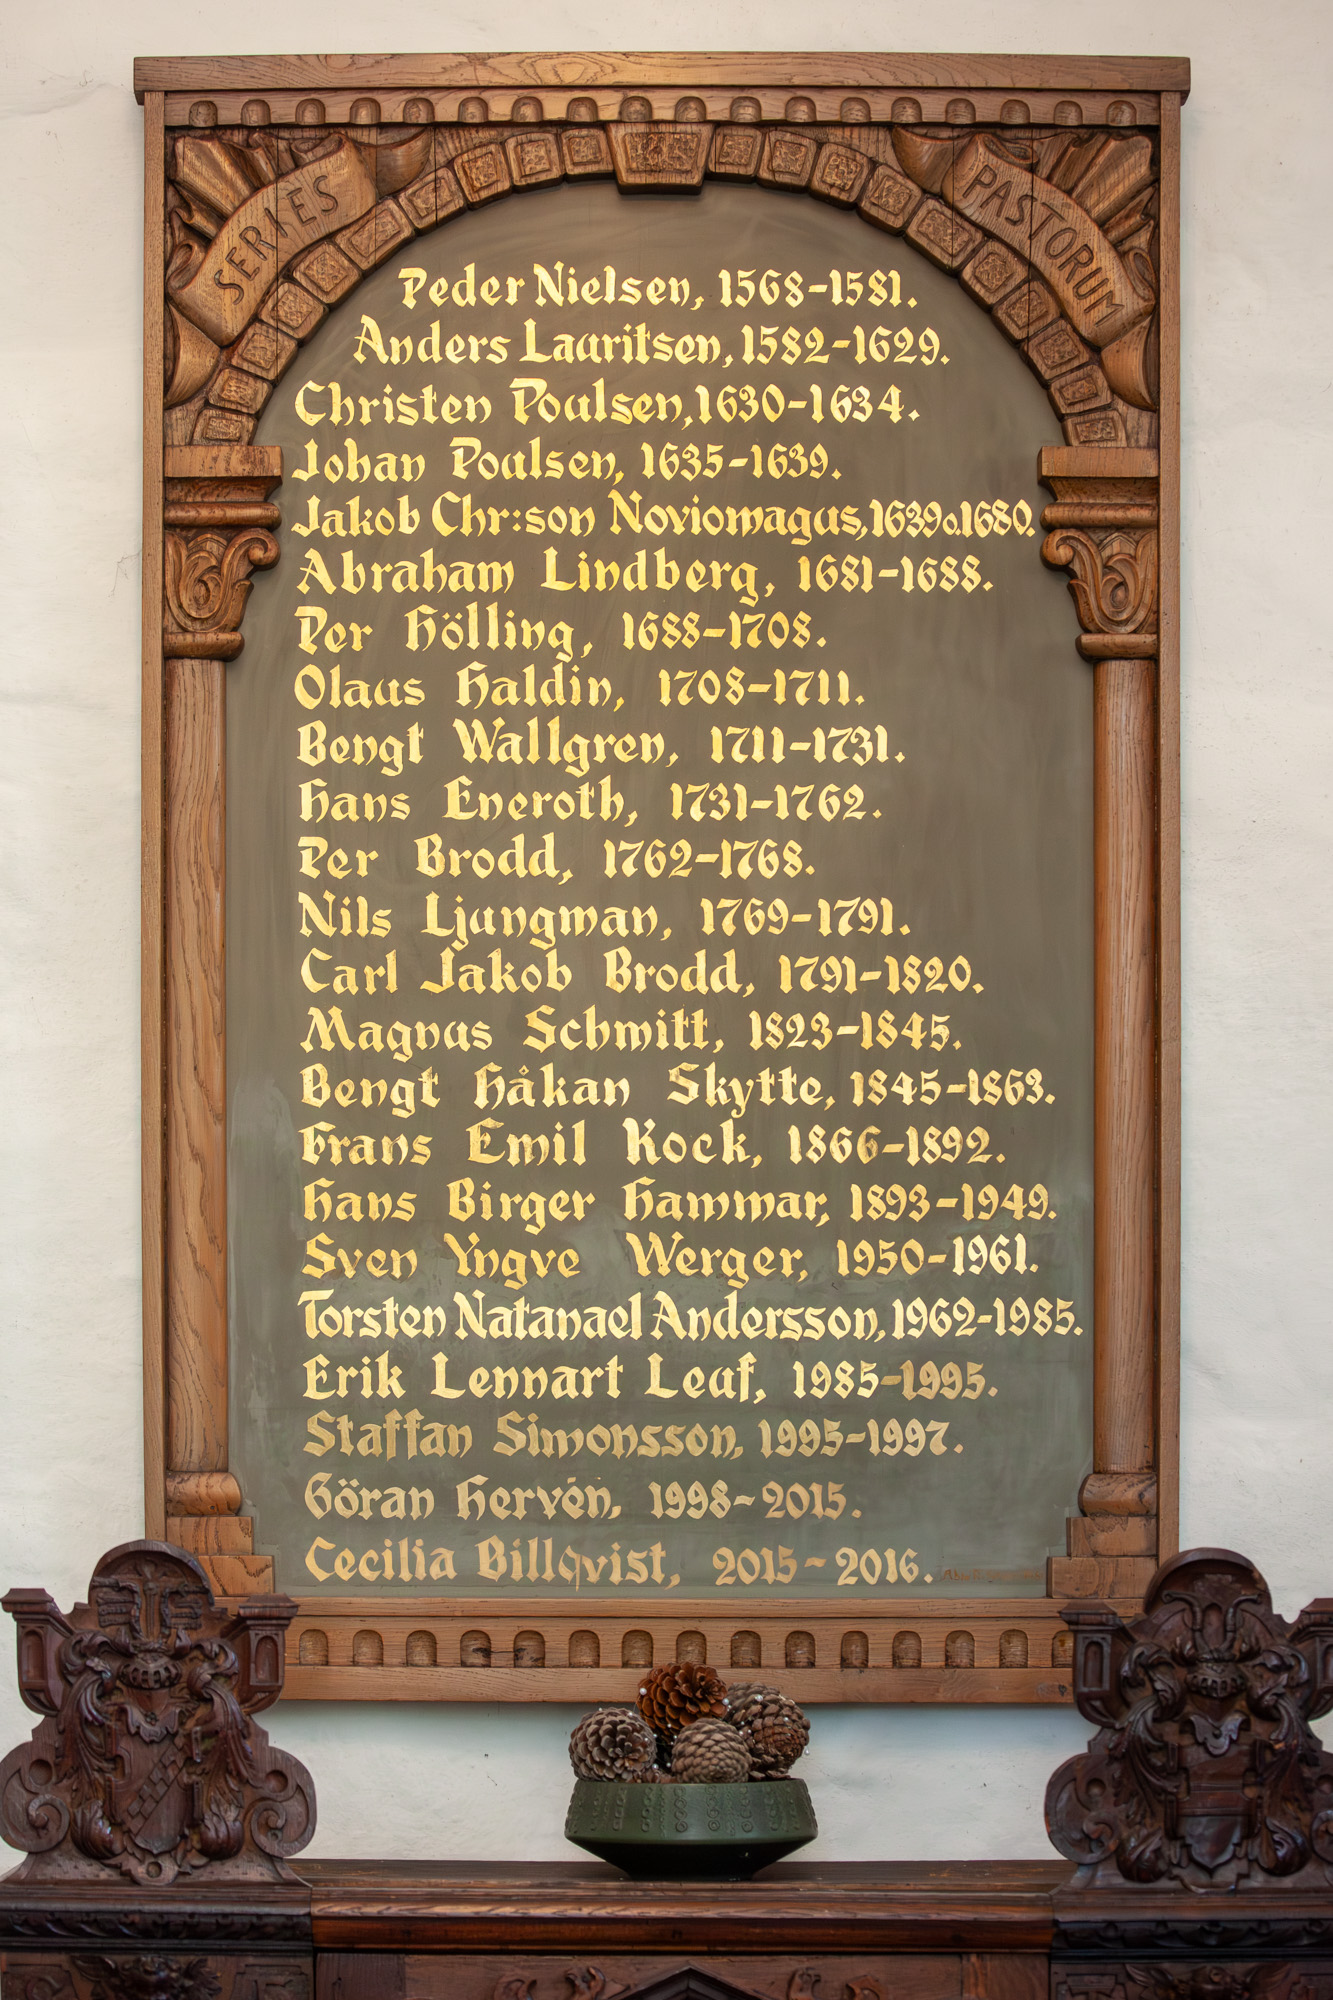 SERIES PASTORUM
Peder Nielsen, 1568-1581.
Anders Lauritsen, 1582-1629.
Christen Poulsen, 1630-1634.
Johan Poulsen, 1635-1639.
Jakob Chr:son Noviomagus, 1639o.1680.
Abraham Lindberg, 1681-1688.
Per Hölling, 1688-1708.
Olaus Haldin, 1708-1711.
Bengt Wallgren, 1711-1731.
Hans Eneroth, 1731-1762.
Per Brodd, 1762-1768.
Nils Ljungman, 1769-1791.
Carl Jakob Brodd, 1791-1820.
Magnus Schmitt, 1823-1845.
Bengt Håkan Skytte, 1845-1863.
Frans Emil Kock, 1866-1892.
Hans Birger Hammar, 1893-1949.
Sven Yngve Werger, 1950-1961.
Torsten Natanael Andersson, 1962-1985.
Erik Lennart Leuf, 1985-1995.
Staffan Simonsson, 1995-1997.
Göran Hervén, 1998-2015.
Cecilia Billqvist, 2015-2016.